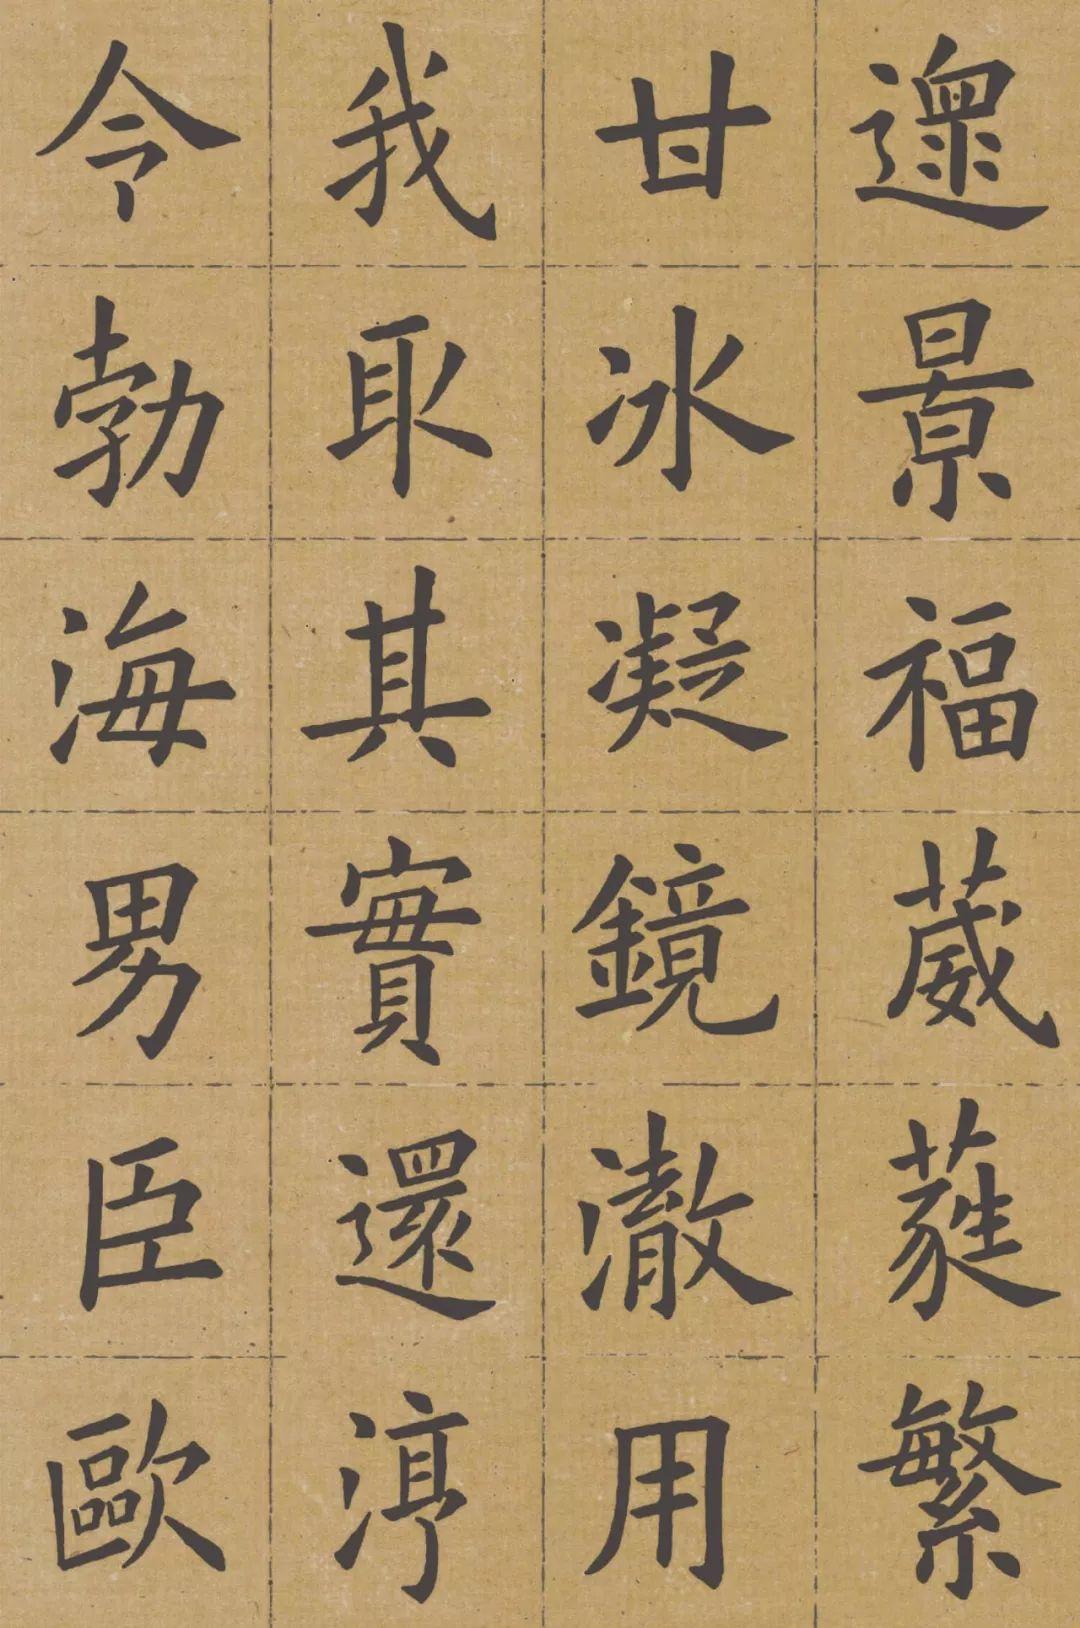 遝景福葳蕤繁
甘冰凝鏡澈用
我取其實還淳
令勃海男臣歐